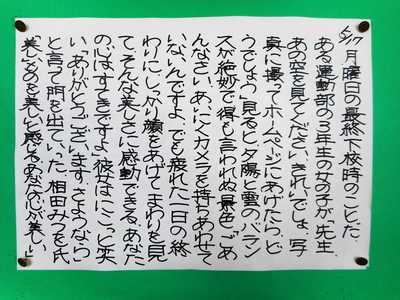 5/17 月曜日の最終下校時のことだ。
ある運動部の3年生の女の子が「先生、
あの空を見てください。きれいでしょ。写
真に撮ってホームページにあげたら、ど
うでしょう。」見ると夕陽と雲のバラン
スが絶妙で得も言われぬ景色。「ごめ
んなさい。あいにくカメラを持ちあわせて
いないんですよ。でも疲れた一日の終
わりに、しっかり顔をあげてまわりを見
て、そんな美しさに感動できる、あなた
の心はすてきですよ。」彼女はにこっと笑
い、「ありがとうございます。さようなら」
と言って門を出ていった。相田みつを氏
「美しいものを美しいと感じるあなたの心が美しい」